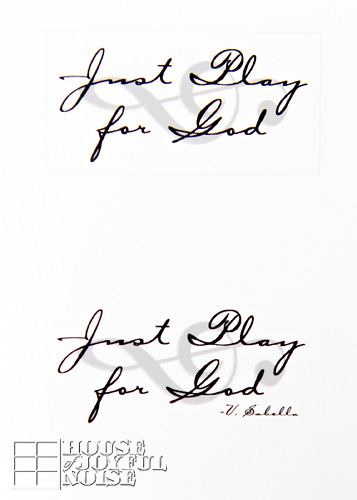 Just Play
for God
Just Play
for God
-V. Sabella
HOUSE
of JOYFUL
NOISE